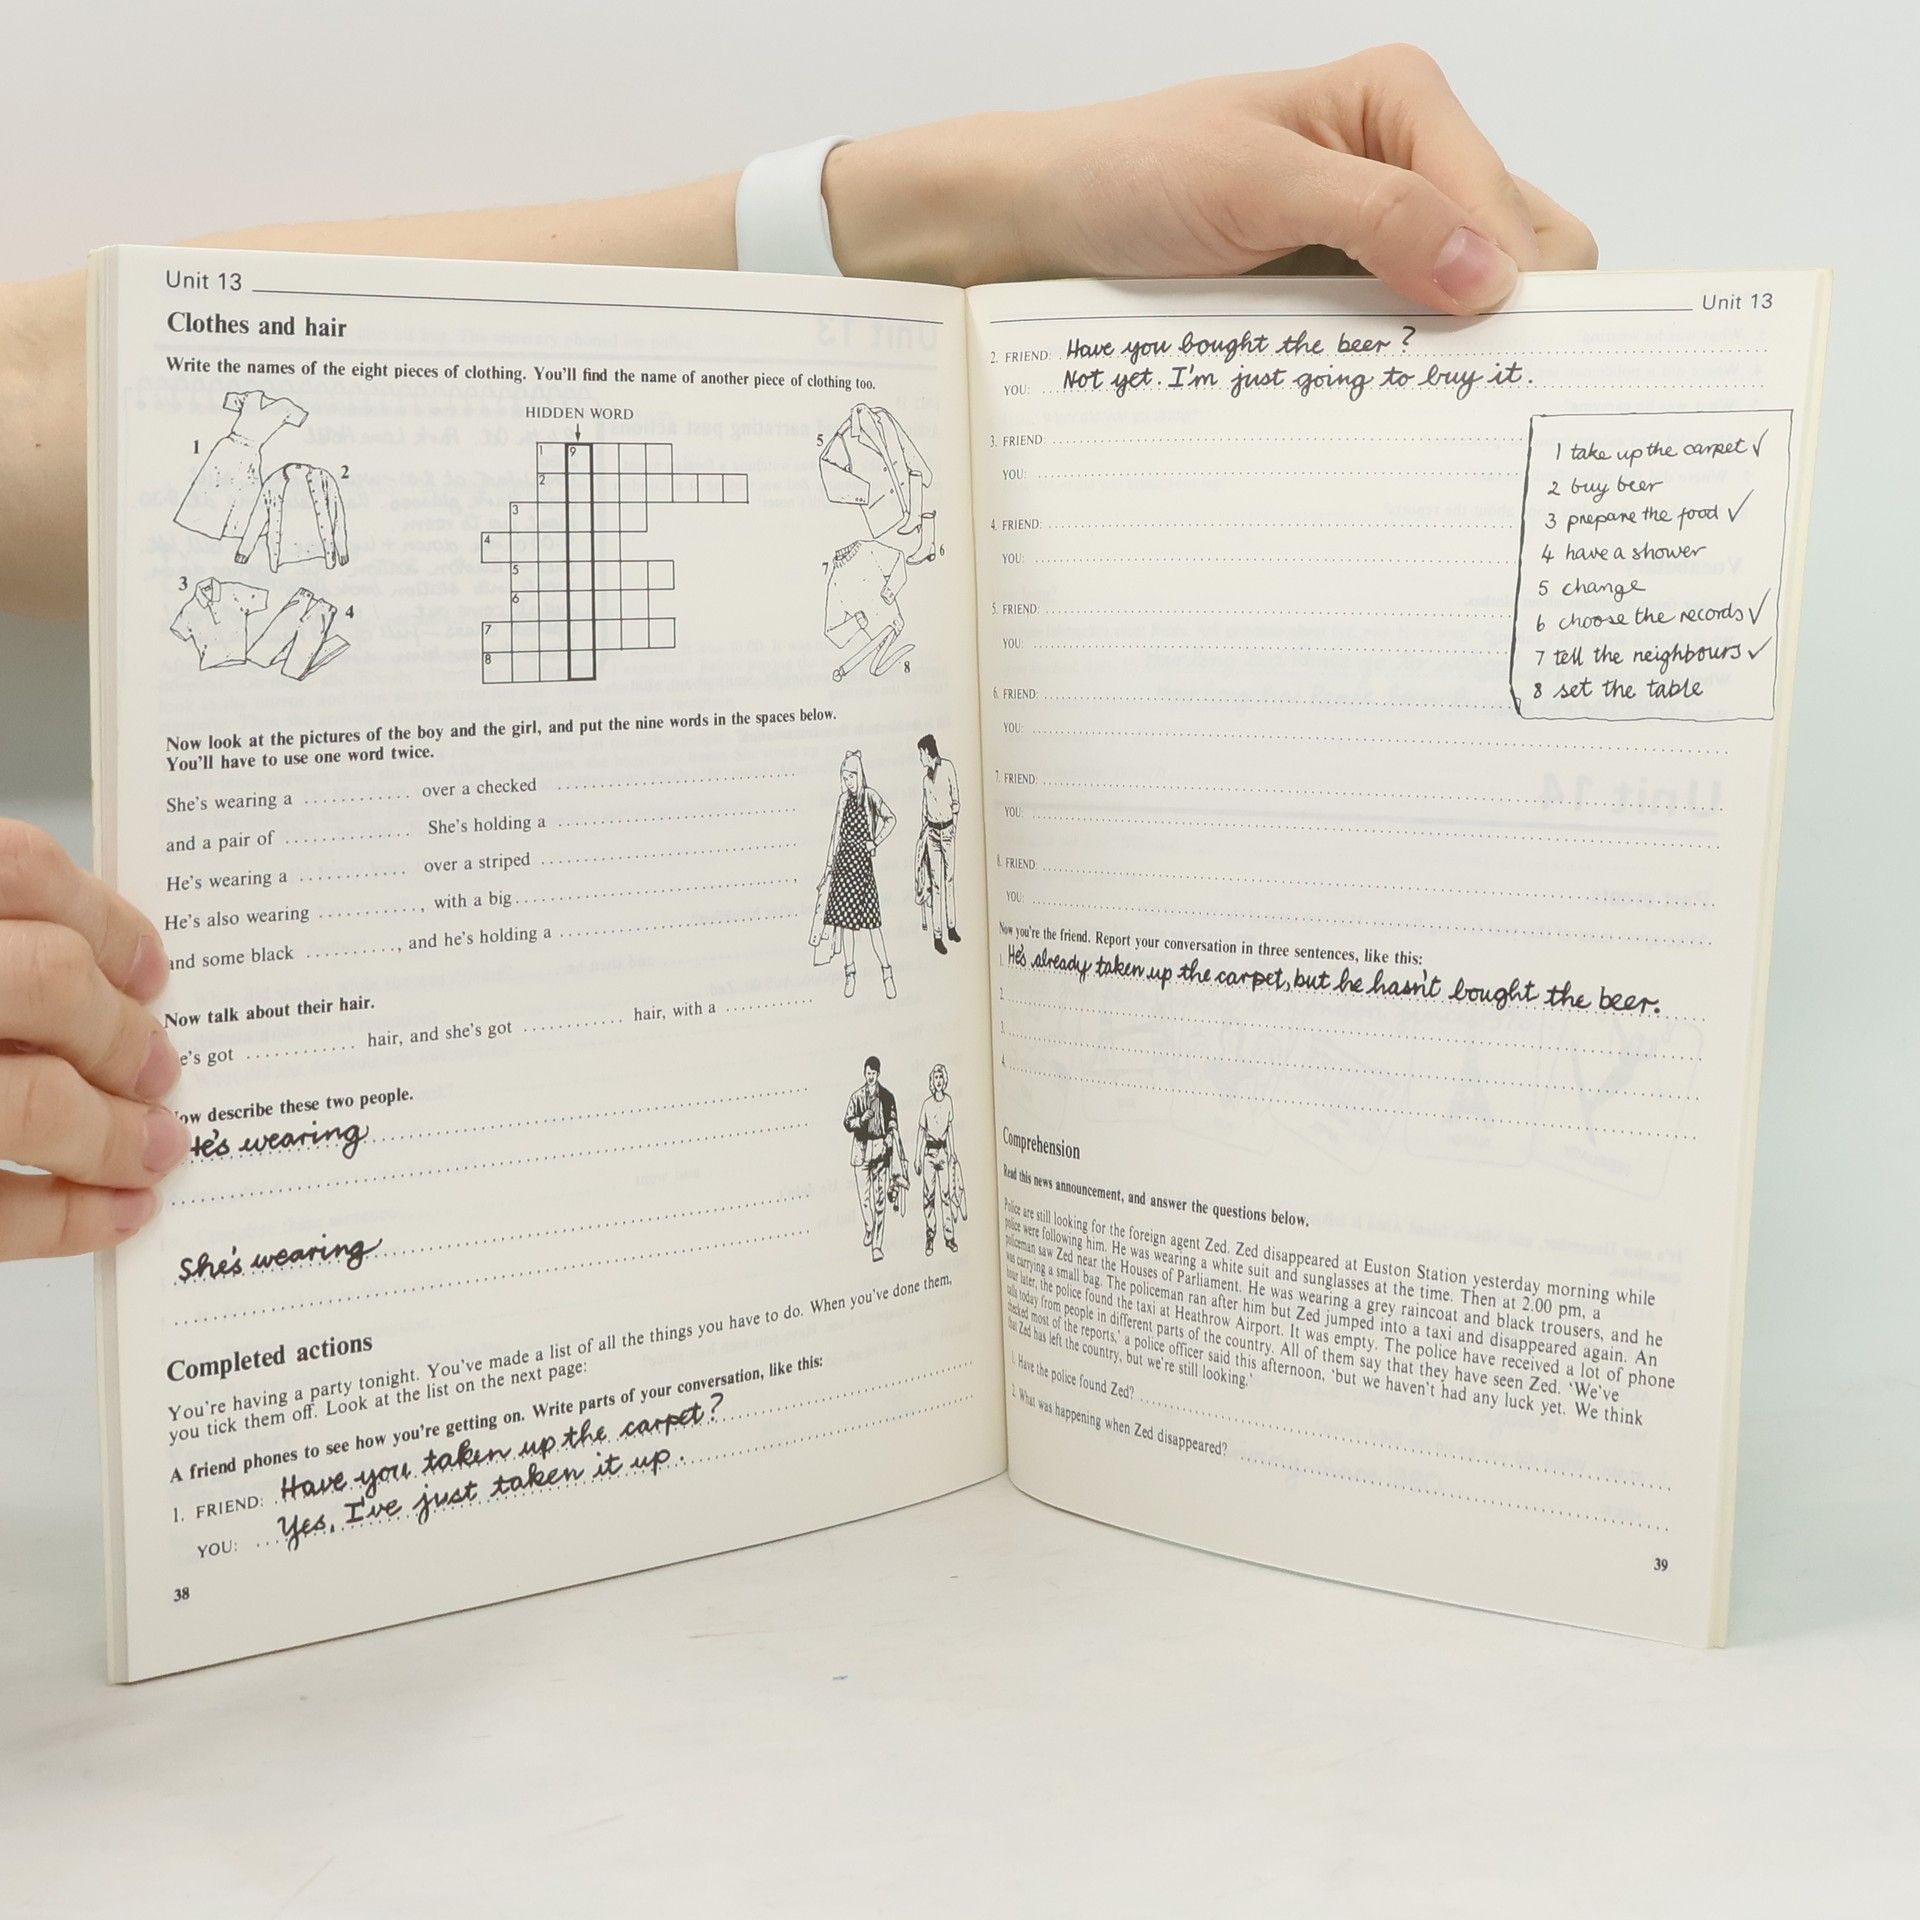 Unit 13
Clothes and hair
Write the names of the eight pieces of clothing. You'll find the name of another piece of clothing too.
HIDDEN WORD
1
2
3
4
5
6
7
8
1 9
2
3
4
5
6
7
8
Now look at the pictures of the boy and the girl, and put the nine words in the spaces below.
You'll have to use one word twice.
She's wearing a ............ over a checked ............
and a pair of ............ She's holding a ............
He's wearing a ............ over a striped ............
He's also wearing ............, with a big ............,
and some black .........., and he's holding a ............
Now talk about their hair.
e's got ............ hair, and she's got ............ hair, with a ............
ow describe these two people.
He's wearing
She's wearing
Completed actions
You're having a party tonight. You've made a list of all the things you have to do. When you've done them,
you tick them off. Look at the list on the next page:
A friend phones to see how you're getting on. Write parts of your conversation, like this:
1. FRIEND: Have you taken up the carpet?
YOU: Yes, I've just taken it up.
38
Unit 13
2. FRIEND: Have you bought the beer?
YOU: Not yet. I'm just going to buy it.
3. FRIEND:
YOU:
4. FRIEND:
YOU:
5. FRIEND:
YOU:
6. FRIEND:
YOU:
7. FRIEND:
YOU:
8. FRIEND:
YOU:
1 take up the carpet ✓
2 buy beer
3 prepare the food ✓
4 have a shower
5 change
6 choose the records ✓
7 tell the neighbours ✓
8 set the table
Now you're the friend. Report your conversation in three sentences, like this:
1. He's already taken up the carpet, but he hasn't bought the beer.
2.
3.
4.
Comprehension
Read this news announcement, and answer the questions below.
Police are still looking for the foreign agent Zed. Zed disappeared at Euston Station yesterday morning while
police were following him. He was wearing a white suit and sunglasses at the time. Then at 2.00 pm, a
policeman saw Zed near the Houses of Parliament. He was wearing a grey raincoat and black trousers, and he
was carrying a small bag. The policeman ran after him but Zed jumped into a taxi and disappeared again. An
hour later, the police found the taxi at Heathrow Airport. It was empty. The police have received a lot of phone
calls today from people in different parts of the country. All of them say that they have seen Zed. 'We've
checked most of the reports,' a police officer said this afternoon, 'but we haven't had any luck yet. We think
that Zed has left the country, but we're still looking.'
1. Have the police found Zed?
2. What was happening when Zed disappeared?
39